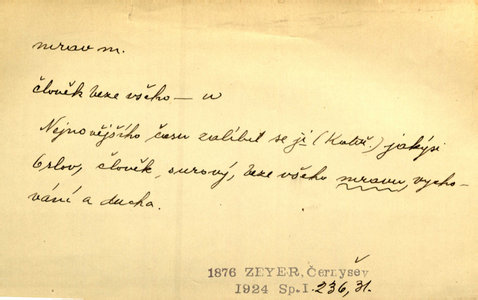 mrav m.
člověk beze všeho — u
Nejnovějšího času zalíbil se jí (Kateř.) jakýsi
Orlov, člověk surový, beze všeho mravu, vycho-
vání a ducha.
1876 ZEYER, Černyšev
1924 Sp. I. 236, 31.